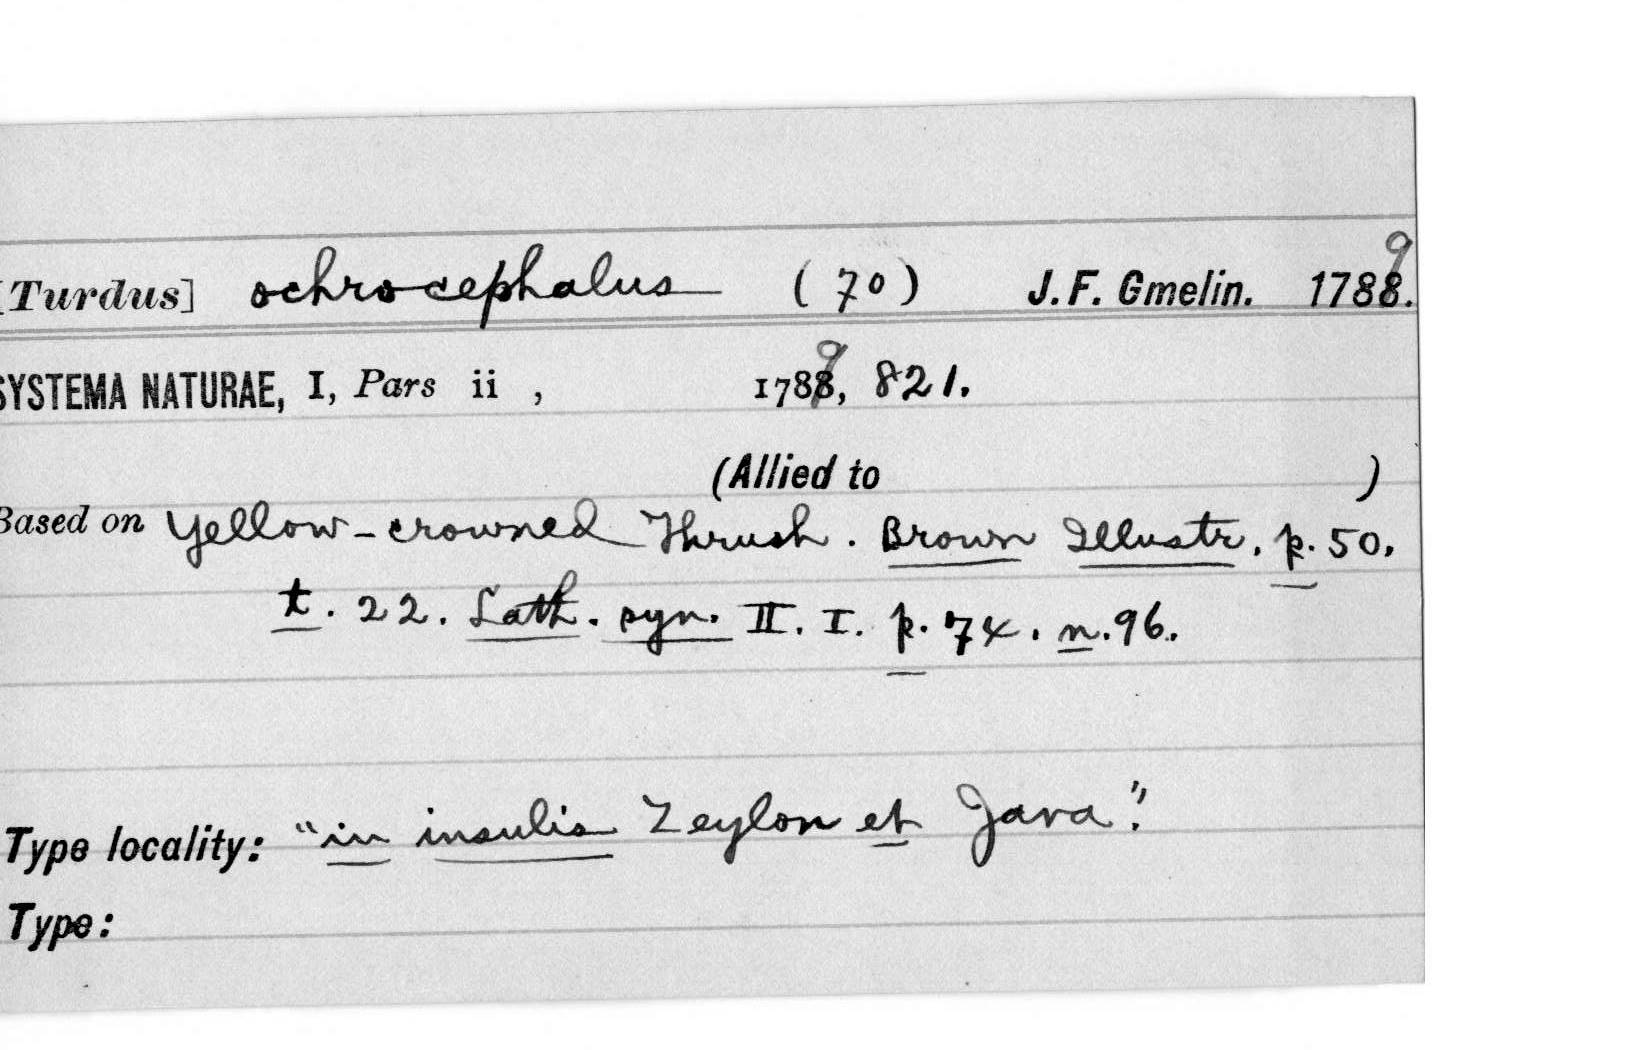 [Turdus] ochrocephalus (70) J. F. Gmelin. 1789.
SYSTEMA NATURAE, I, Pars ii , 1789, 821.
(Allied to )
Based on Yellow-crowned Thrush. Brown Illustr. p. 50,
t. 22. Lath. syn. II. I. p. 74. n. 96.
Type locality: "in insulis Zeylon et Java".
Type: